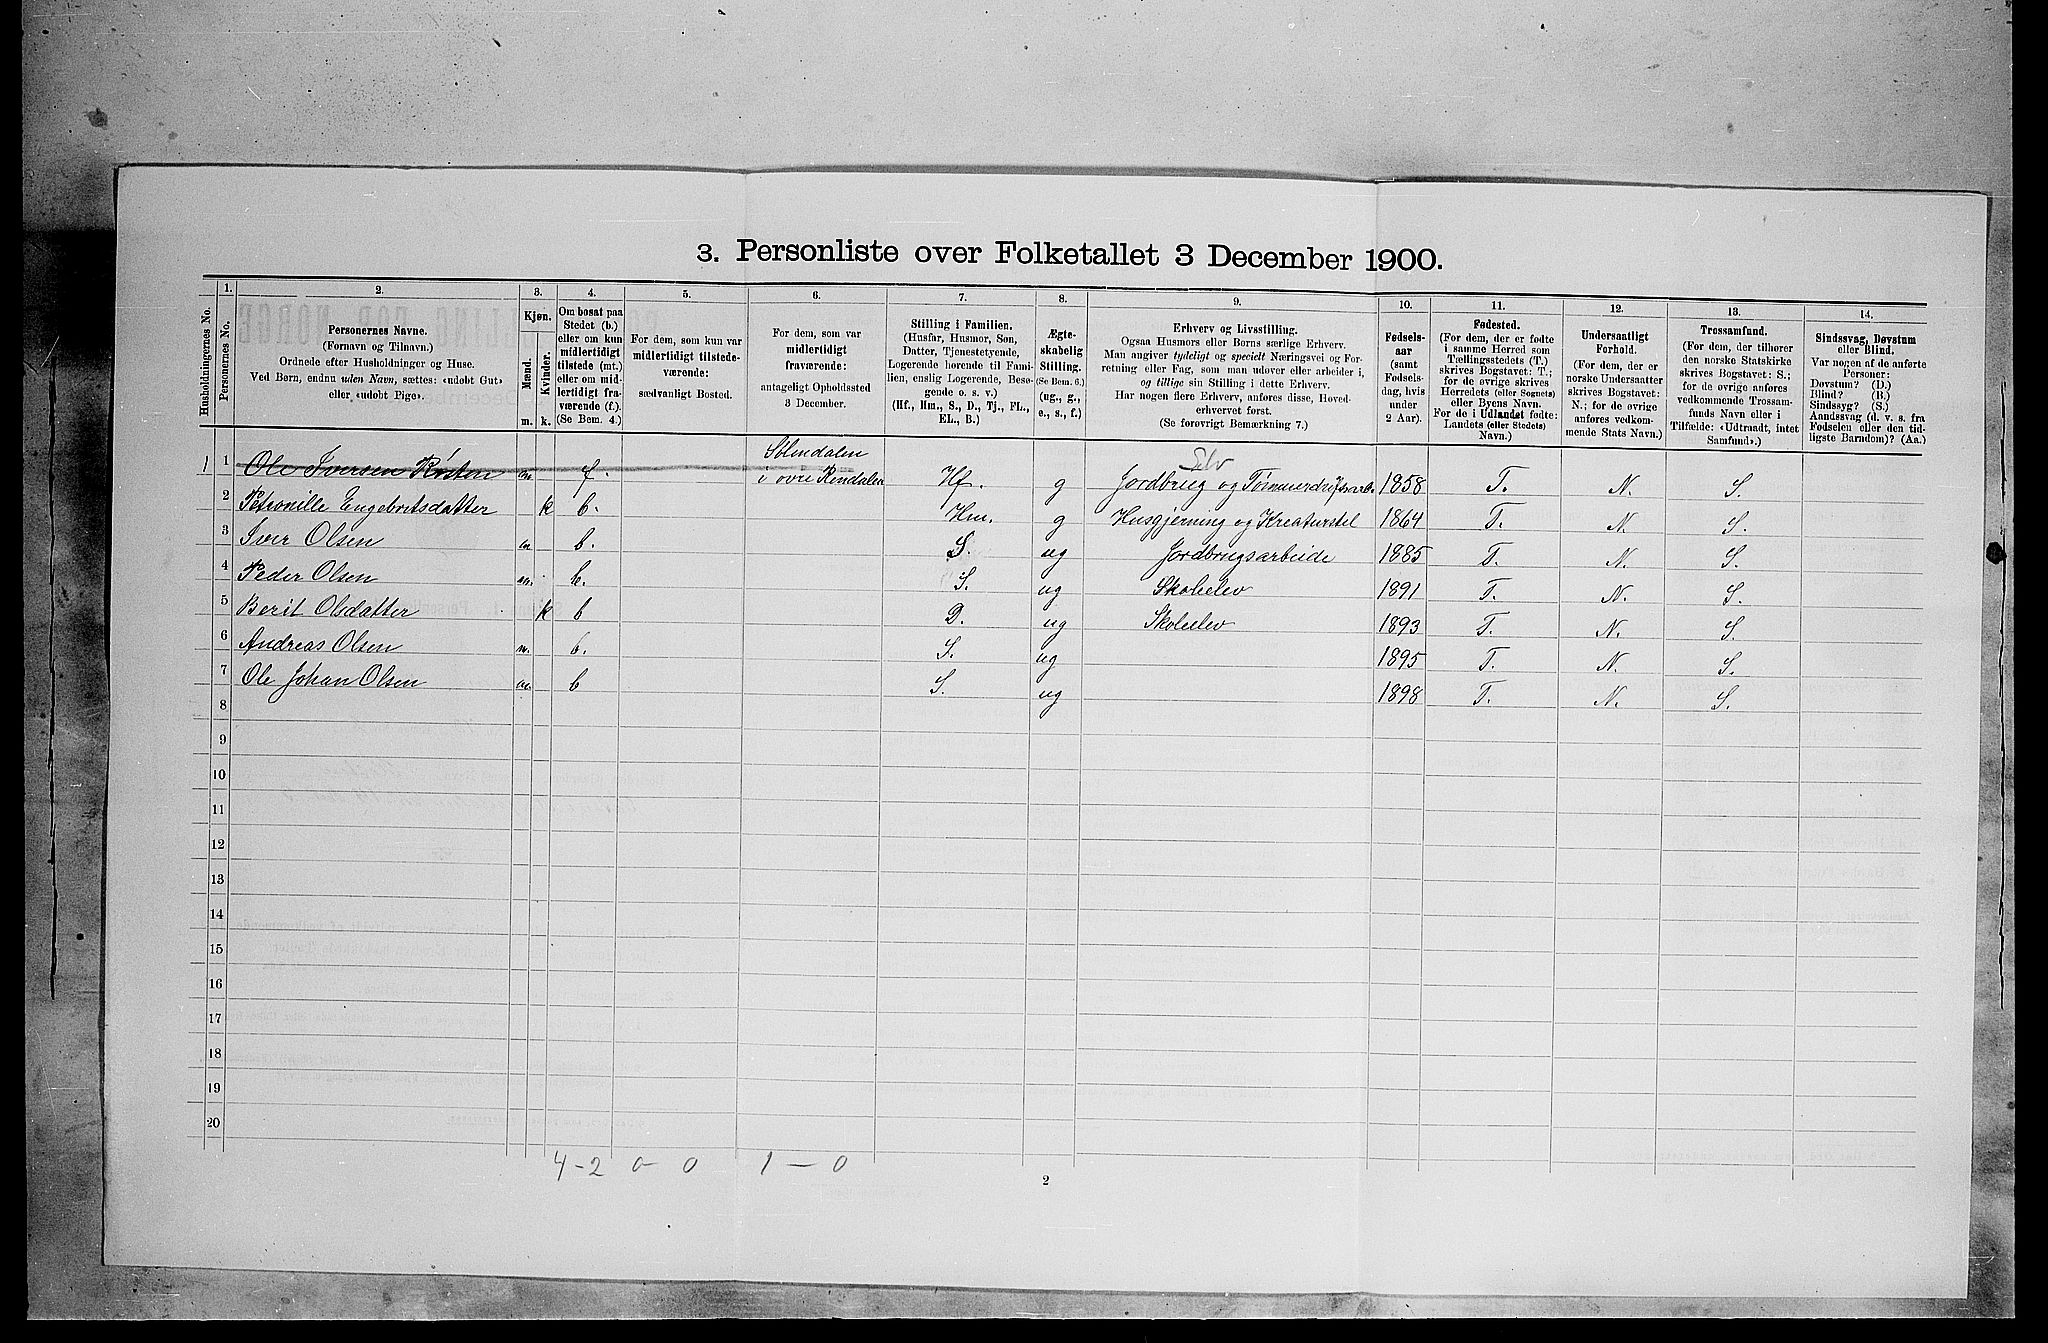 3. Personliste over Folketallet 3 December 1900.
1. 2. 3. 4. 5. 6. 7. 8. 9. 10. 11. 12. 13. 14.
Husholdningernes No.
Personernes No.
Personernes Navne.
(Fornavn og Tilnavn.)
Ordnede efter Husholdninger og Huse.
Ved Børn, endnu uden Navn, sættes: «udobt Gut»
eller, «udobt Pige».
Kjøn.
Mænd.
Kvinder.
m. k.
Om bosat paa
Stedet (b.)
eller om kun
midlertidigt
tilstede (mt.)
eller om mid-
lertidigt fra-
værende (f.).
(Se Bem. 4.)
For dem, som kun var
midlertidigt tilstede-
værende:
sædvanligt Bosted.
For dem, som var
midlertidigt
fraværende:
antageligt Opholdssted
3 December.
Stilling i Familien.
(Husfar, Husmor, Søn,
Datter, Tjenestetyende,
Logerende hørende til Fami-
lien, enslig Logerende, Besø-
gende o. s. v.)
(Hf., Hm., S., D., Tj., FL.,
EL., B.)
Ægte-
skabelig
Stilling.
(Se Bem. 6.)
(ug., g.,
e., s., f.)
Erhverv og Livsstilling.
Ogsaa Husmors eller Børns særlige Erhverv.
Man angiver tydeligt og specielt Næringsvei og For-
retning eller Fag, som man udøver eller arbeider i,
og tillige sin Stilling i dette Erhverv.
Har nogen flere Erhverv, anføres disse, Hoved-
erhvervet først.
(Se forøvrigt Bemærkning 7.)
Fødsels-
aar
(samt
Fødsels-
dag, hvis
under
2 Aar).
Fødested.
(For dem, der er fødte
i samme Herred som
Tællingsstedets (T.)
skrives Bogstavet: T.;
for de øvrige skrives
Herredets (eller Sognets)
eller Byens Navn.
For de i Udlandet fødte:
Landets (eller Stedets)
Navn.)
Undersaatligt
Forhold.
(For dem, der er
norske Undersaatter
skrives Bogstavet:
N.; for de øvrige
anføres vedkom-
mende Stats Navn.)
Trossamfund.
(For dem, der tilhører
den norske Statskirke
skrives Bogstavet: S.;
for de øvrige anføres
vedkommende Trossam-
funds Navn eller i
Tilfælde: «Udtraadt, intet
Samfund».)
Sindssvag, Døvstum
eller Blind.
Var nogen af de anførte
Personer:
Døvstum? (D.)
Blind? (B.)
Sindssyg? (S.)
Aandssvag (d. v. s. fra
Fødselen eller den tid-
ligste Barndom)? (Aa.)
Sølendalen
Selv
1 1 Ole Iversen Røsten m f. i øvre Rendalen Hf. g Jordbrug og Tømmerdriftsarb. 1858 T. N. S.
2 Petronille Engebretsdatter k b. Hm. g Husgjerning og Kreaturstel 1864 T. N. S.
3 Iver Olsen m b. S. ug Jordbrugsarbeide 1885 T. N. S.
4 Peder Olsen m. b. S. ug Skoleelev 1891 T. N. S.
5 Berit Olsdatter k b D. ug Skoleelev 1893 T. N. S.
6 Andreas Olsen m. b. S. ug 1895 T. N. S.
7 Ole Johan Olsen m. b S. ug 1898 T. N. S.
8
9
10
11
12
13
14
15
16
17
18
19
20
4-2 0-0 1-0
2